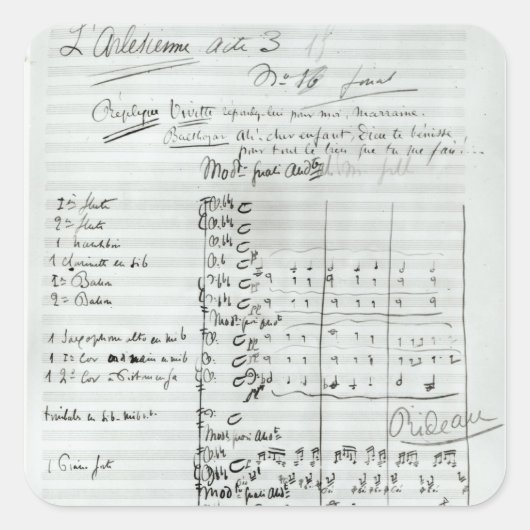 L'Arlésienne acte 3
No 16 final
Réplique Vivette réponds-lui pour moi, marraine.
Balthazar Ah! cher enfant, Dieu te bénisse
pour tout le bien que tu me fais!
Modto quasi Andte
1re flute
2e flute
1 hautbois
1 Clarinette en sib
1er Basson
2e Basson
Modto quasi Andte
1 Saxophone alto en mib
1 1er Cor en mib
1 2e Cor à Pistons en fa
Rideau
timbales en sib. mib.
Modto quasi Andte
1 Piano forte
Modto quasi Andte